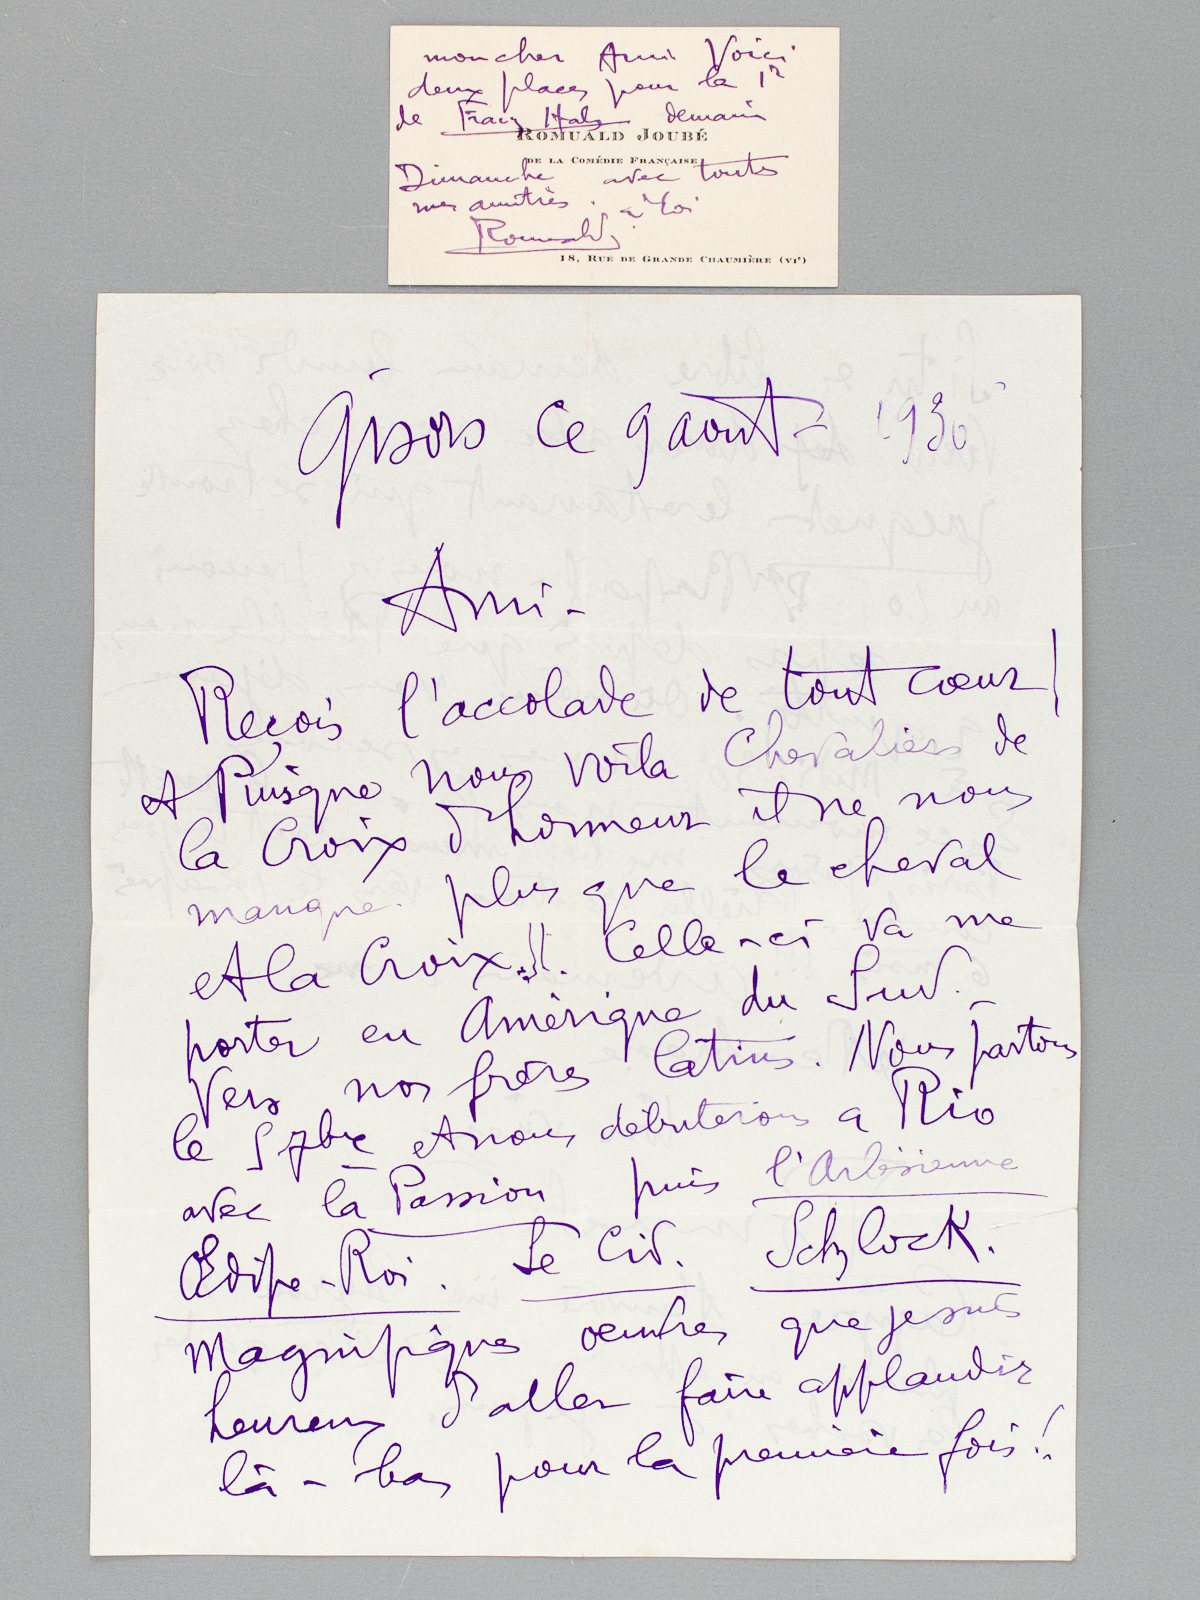 mon cher Ami Voici
deux places pour la 1re
de Franz Hals demain
ROMUALD JOUBÉ
DE LA COMÉDIE FRANÇAISE
Dimanche avec toutes
mes amitiés. à toi
Romuald
18, RUE DE GRANDE CHAUMIÈRE (VIe)
Gisors ce 9 août - 1930
Ami -
Reçois l'accolade de tout cœur!
et Puisque nous voila Chevaliers de
la Croix d'honneur il ne nous
manque plus que le cheval
et la Croix!!. Celle-ci va me
porter en Amérique du Sud. -
Vers nos frères latins. Nous partons
le 5 7bre et nous débuterons a Rio
avec la Passion puis l'Arlésienne
Œdipe-Roi. Le Cid. Schylock.
Magnifiques oeuvres que je suis
heureux d'aller faire applaudir
là-bas pour la première fois!